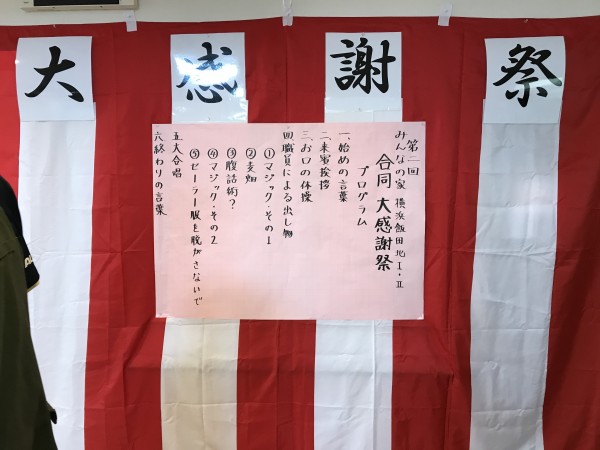 大感謝祭
第二回
みんなの家 横浜飯田北Ⅰ・Ⅱ
合同 大感謝祭
プログラム
一、始めの言葉
二、来賓挨拶
三、お口の体操
四、職員による出し物
①マジック・その1
②麦畑
③腹話術?
④マジック・その2
⑤ピーラー服を脱がさないで
五大合唱
六終わりの言葉